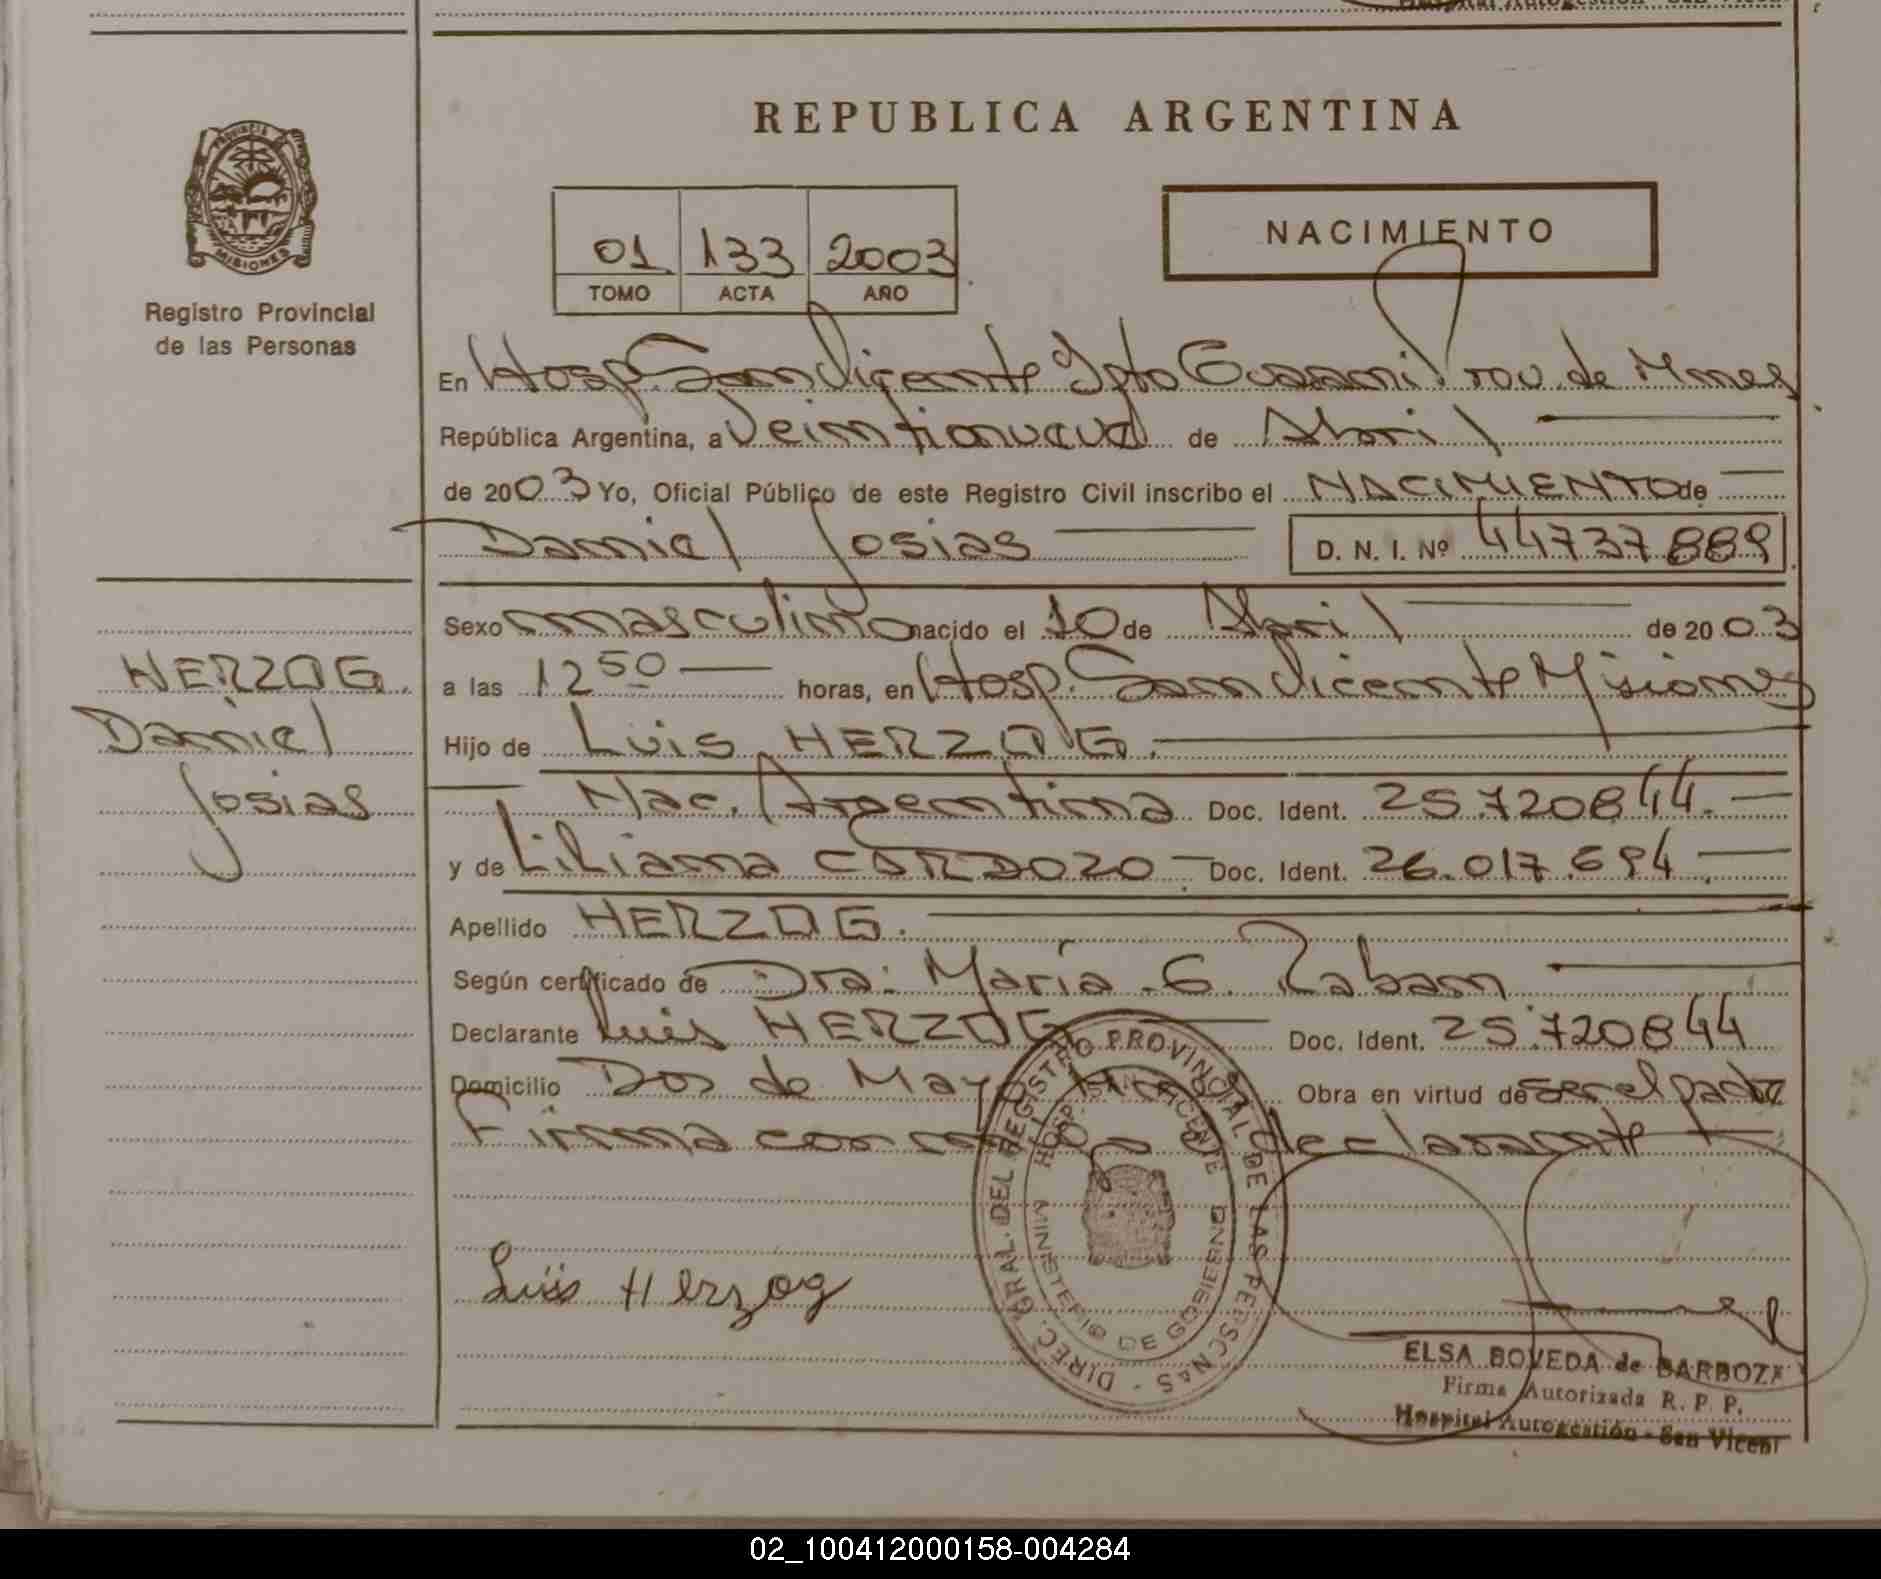 REPUBLICA ARGENTINA
PROVINCIA DE MISIONES
Registro Provincial
de las Personas
01 133 2003
TOMO ACTA AÑO
NACIMIENTO
En Hosp. San Vicente Dpto Guarani Prov. de Mnes
República Argentina, a Veintinueve de Abril
de 2003 Yo, Oficial Público de este Registro Civil inscribo el NACIMIENTO de
Daniel Josias D. N. I. Nº 44737889
Sexo masculino nacido el 10 de Abril de 2003
a las 12 50 horas, en Hosp. San Vicente Misiones
Hijo de Luis HERZOG.
Nac. Argentina Doc. Ident. 25.720844.
y de Liliana CARDOZO Doc. Ident. 26.017.694.
Apellido HERZOG.
Según certificado de Dra: María G. Zaban
Declarante Luis HERZOG Doc. Ident. 25.720844
Domicilio Dos de Mayo Obra en virtud de ser el padre
Firma con migo declarante
HERZOG.
Daniel
Josias
Luis Herzog
DIREC. GRAL. DEL REGISTRO PROVINCIAL DE LAS PERSONAS
HOSP. SAN VICENTE
MINISTERIO DE GOBIERNO
ELSA BOVEDA de BARBOZA
Firma Autorizada R. P. P.
Hospital Autogestión - San Vicent
02_100412000158-004284